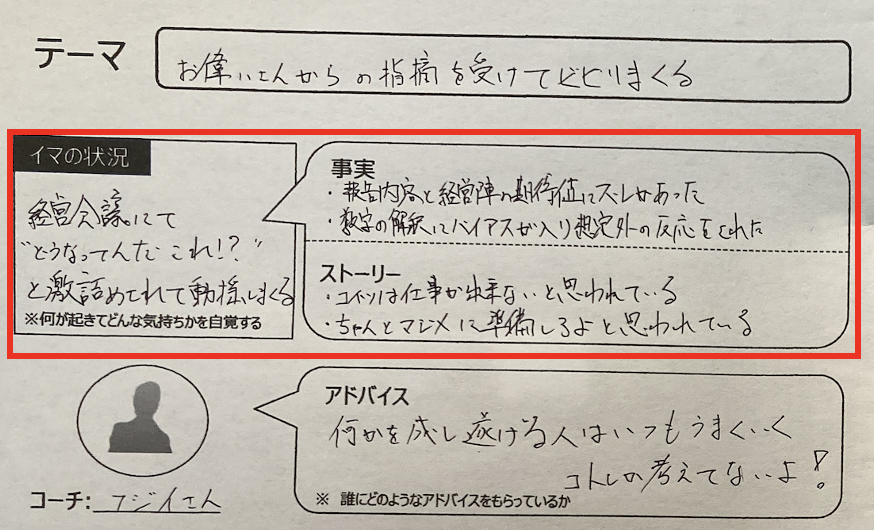 テーマ
お偉いさんからの指摘を受けてビビりまくる
イマの状況
経営会議にて
"どうなってんだ これ!?"
と激詰めされて動揺しまくる
※何が起きてどんな気持ちかを自覚する
事実
・報告内容と経営陣の期待値にズレがあった
・数字の解釈にバイアスが入り想定外の反応をされた
ストーリー
・コイツは仕事が出来ないと思われている
・ちゃんとマジメに準備しろよと思われている
アドバイス
何かを成し遂げる人はいつもうまくいく
コトしか考えてないよ!
※ 誰にどのようなアドバイスをもらっているか
コーチ: フジイさん